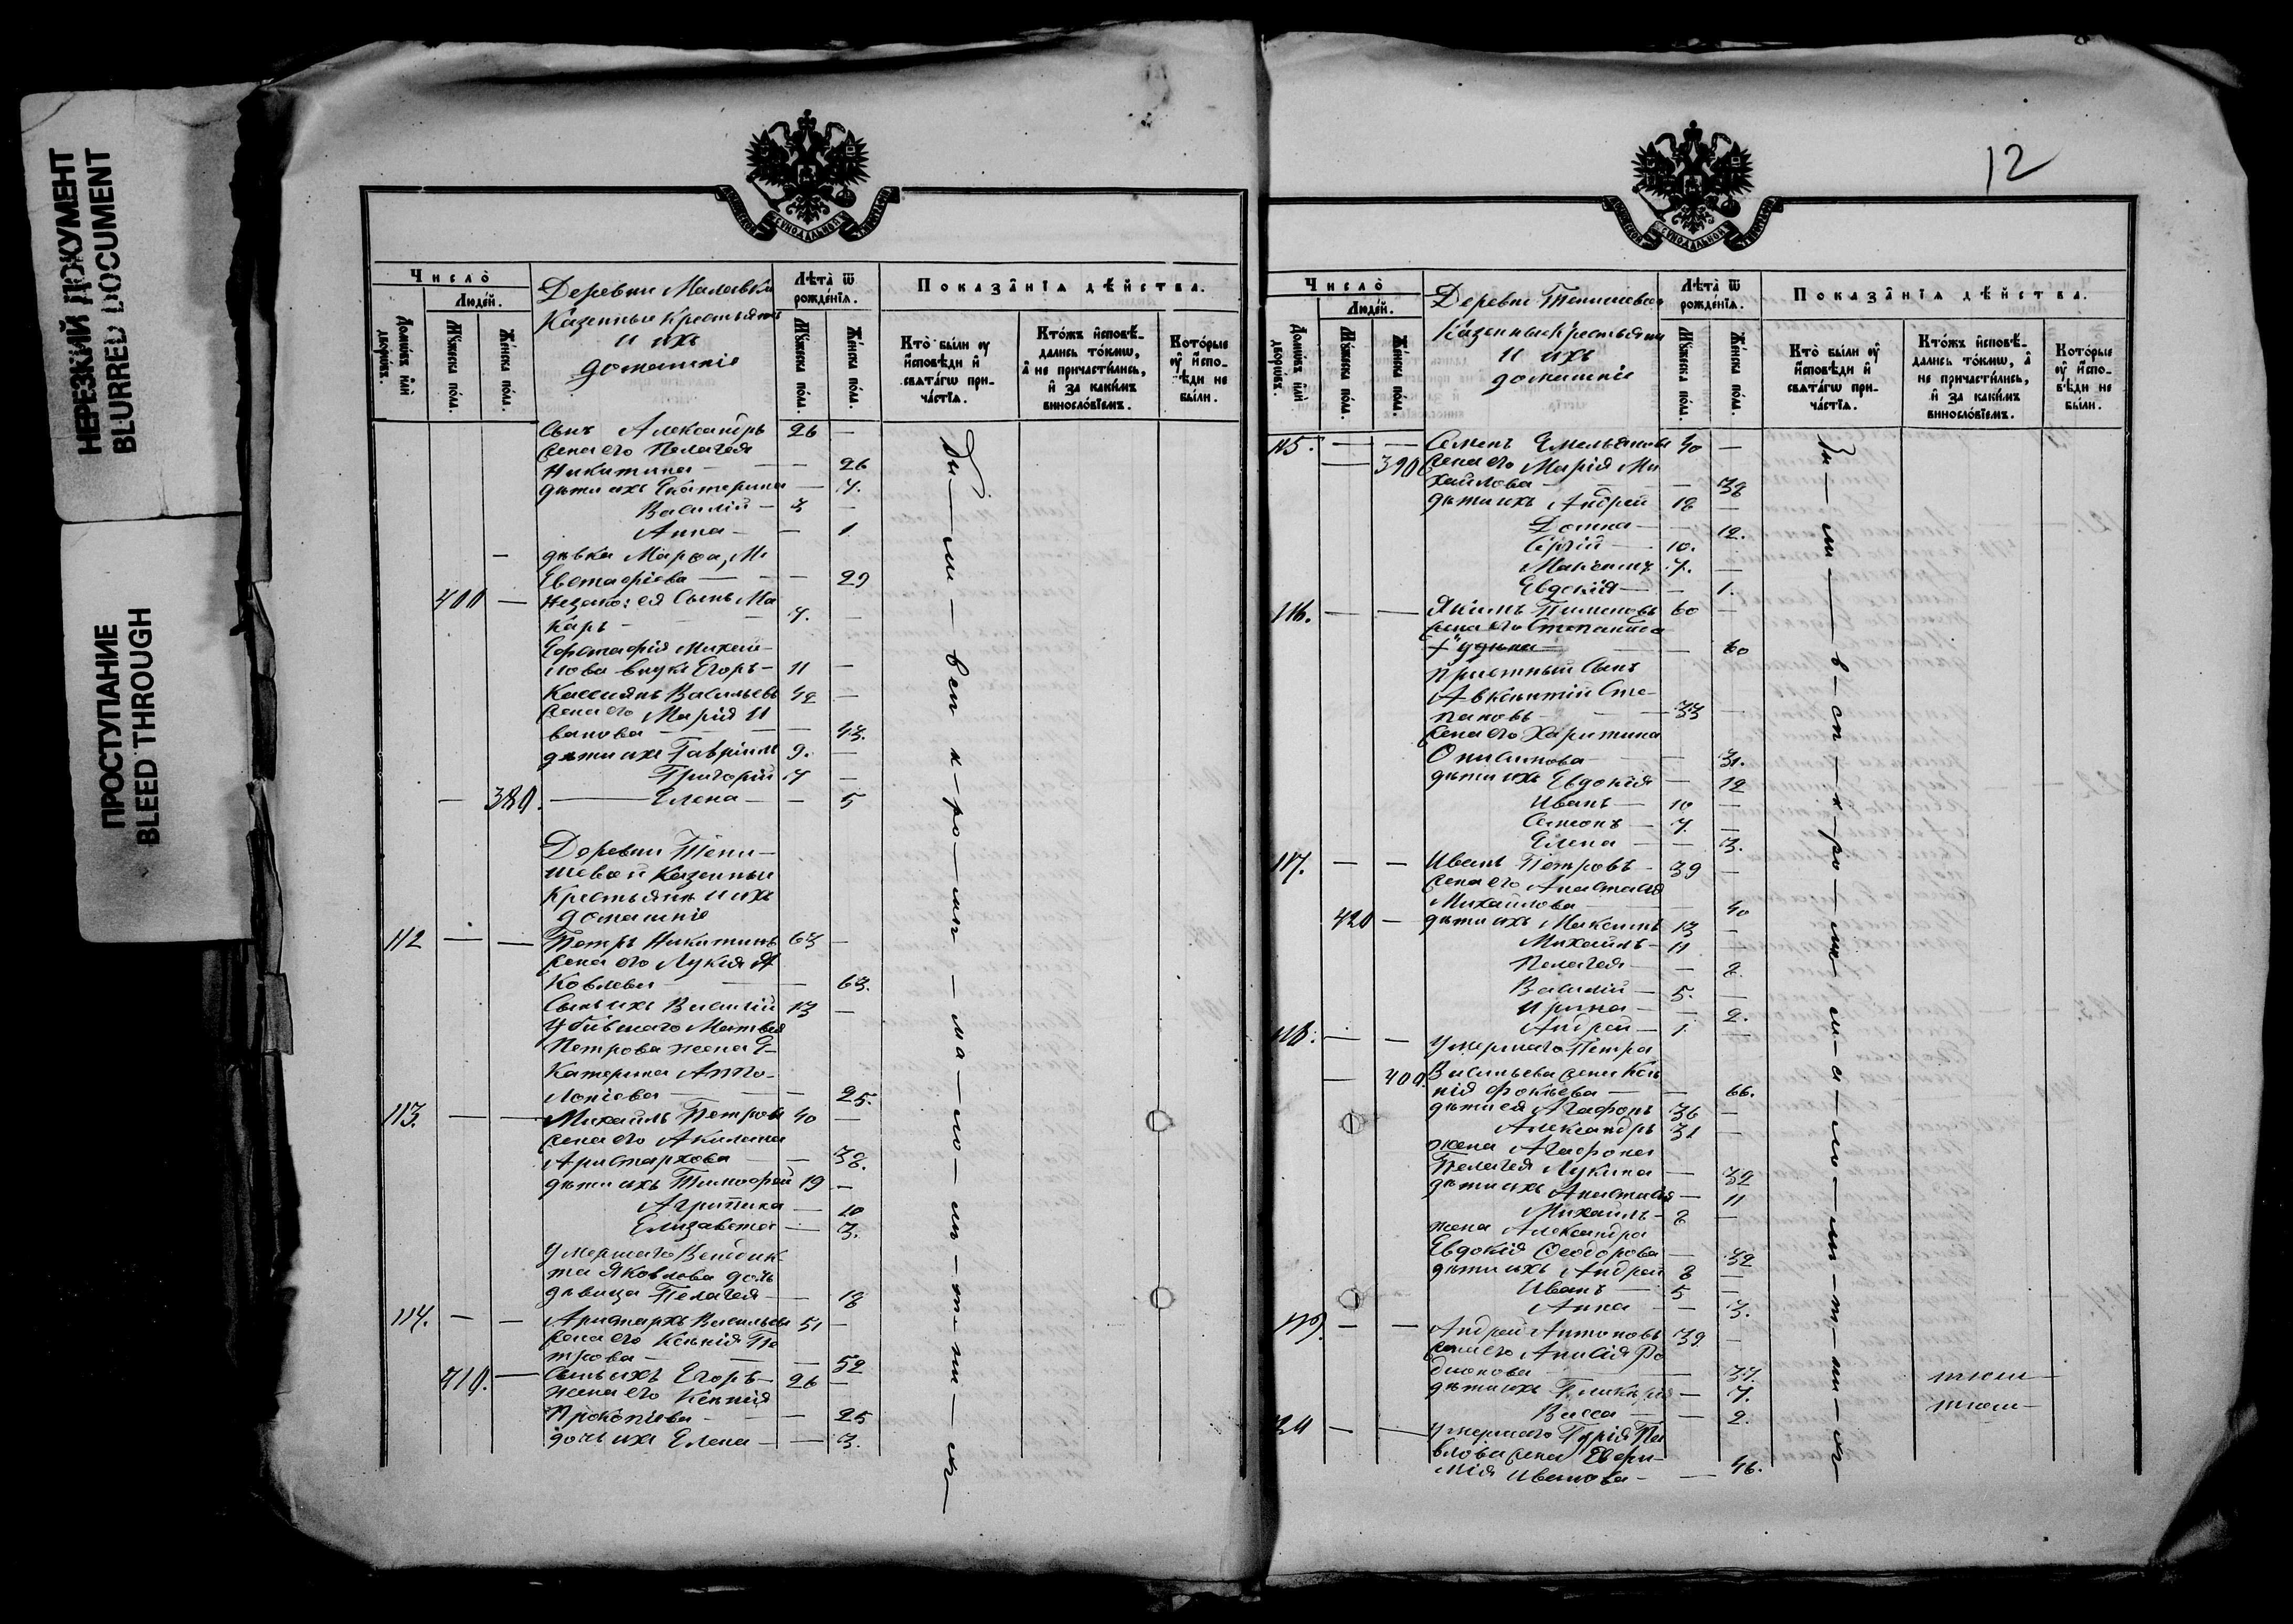 НЕРЕЗКИЙ ДОКУМЕНТ
BLURRED DOCUMENT
ПРОСТУПАНИЕ
BLEED THROUGH
Число̀
Людей.
Домѡвъ или дворѡвъ.
Мꙋжеска пола.
Женска пола.
Деревни
Казенные крестьяне
и ихъ
домашніе
Лѣта̀ ѿ рожденїѧ.
Мꙋжеска пола.
Женска пола.
Показанїѧ дѣйства.
Кто̀ были ѹ
исповѣди и
свѧтагѡ при-
частїѧ.
Ктожъ исповѣ-
дались токмѡ,
а не причастились,
и за какимъ
винословїемъ.
Которые
ѹ испо-
вѣди не
были.
Сынъ Александръ 26 —
жена его Пелагея
Никитина — — 26
дѣти ихъ Екатерина — 7.
Василій — 3 —
Анна — — 1
— дѣвка Марфа
Евстафіева — — 29
400 — незако: ея сынъ Ма
каръ — 7. —
Евстафія Михай-
лова внукъ Егоръ — 11 —
Кассіянъ Васильевъ 42 —
жена его Марія И
ванова — — 43.
дѣти ихъ Гавріилъ 9. —
Григорій 7 —
— 380. — Елена — — 5
Деревни Тени-
шевой Казенные
Крестьяне и ихъ
домашніе
112 — — Петръ Никитинъ 63 —
жена его Лукія Я
ковлева — — 63.
Сынъ ихъ Василій 13 —
Убывшаго Матвея
Петрова жена Е-
катерина Аппо-
лоніева — — 25.
113. — — Михаилъ Петровъ 40 —
жена его Акилина
Аристархова — — 38.
дѣти ихъ Тимофей 19 —
Агрипина — — 10
Елизавета — — 3.
Умершаго Венедик
та Яковлева дочь
дѣвица Пелагея — — 18
114. — — Аристархъ Васильевъ 51 —
жена его Ксенія Пе
трова — — 52
410. — Сынъ ихъ Егоръ — 26 —
жена его Ксенія
Прокопіева — — 25
дочь ихъ Елена — — 3.
Бы — ли — вси к — ро — мѣ — ма — ло — лѣ — т — ни — хъ
12
Число̀
Людей.
Домѡвъ или дворѡвъ.
Мꙋжеска пола.
Женска пола.
Деревни Тенишевой
Казенные Крестьяне
и ихъ
домашніе
Лѣта̀ ѿ рожденїѧ.
Мꙋжеска пола.
Женска пола.
Показанїѧ дѣйства.
Кто̀ были ѹ
исповѣди и
свѧтагѡ при-
частїѧ.
Ктожъ исповѣ-
дались токмѡ, а
не причастились,
и за какимъ
винословїемъ.
Которые
ѹ испо-
вѣди не
были.
115. — — Семенъ Емельяновъ 40 —
— 390 жена его Марія Ми
хайлова — — 38
дѣти ихъ Андрей 18 —
Домна — — 12.
Сергій — 10.
Максимъ 7. —
Евдокія — — 1.
116. — — Якимъ Пименовъ 60 —
жена его Степанида
— 60
Пріемный Сынъ
Авксентій Сте-
пановъ — 33 —
жена его Харитина
Онисимова — — 31.
дѣти ихъ Евдокія — 12
Иванъ — 10 —
Симонъ — 7. —
Елена — — 3.
117. — — Иванъ Петровъ — 39 —
жена его Анастасія
Михайлова — — 40
420 — дѣти ихъ Максимъ 13 —
Михаилъ — 11 —
Пелагея — — 8.
Василій — 5. —
Ирина — — 2.
Андрей — 1. —
118. — — Умершаго Петра
— 400. Васильева жена Ксе
нія Фокіева — — 66.
дѣти ея Агафонъ 36 —
Александръ 31 —
жена Агафона
Пелагея Лукина — 32
дѣти ихъ Анастасія — 11
Михаилъ — 8 —
жена Александра
Евдокія Ѳеодорова — 32
дѣти ихъ Андрей 8 —
Иванъ — 5 —
Анна — — 3.
119. — — Андрей Антоновъ 39. —
жена его Анисія Ро
діонова — — 37.
дѣти ихъ Гликерія — 7.
Васса — — 2.
120 — — Умершаго Гурія Па
влова жена Евфи-
мія Иванова — — 46.
Бы — ли — в — си — к — ро — мѣ — м — а — ло — лѣ — т — ни — хъ